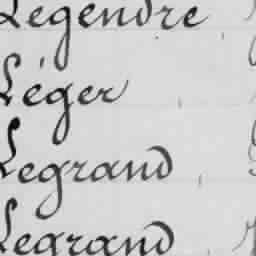 Legendre
Léger
Legrand
Legrand